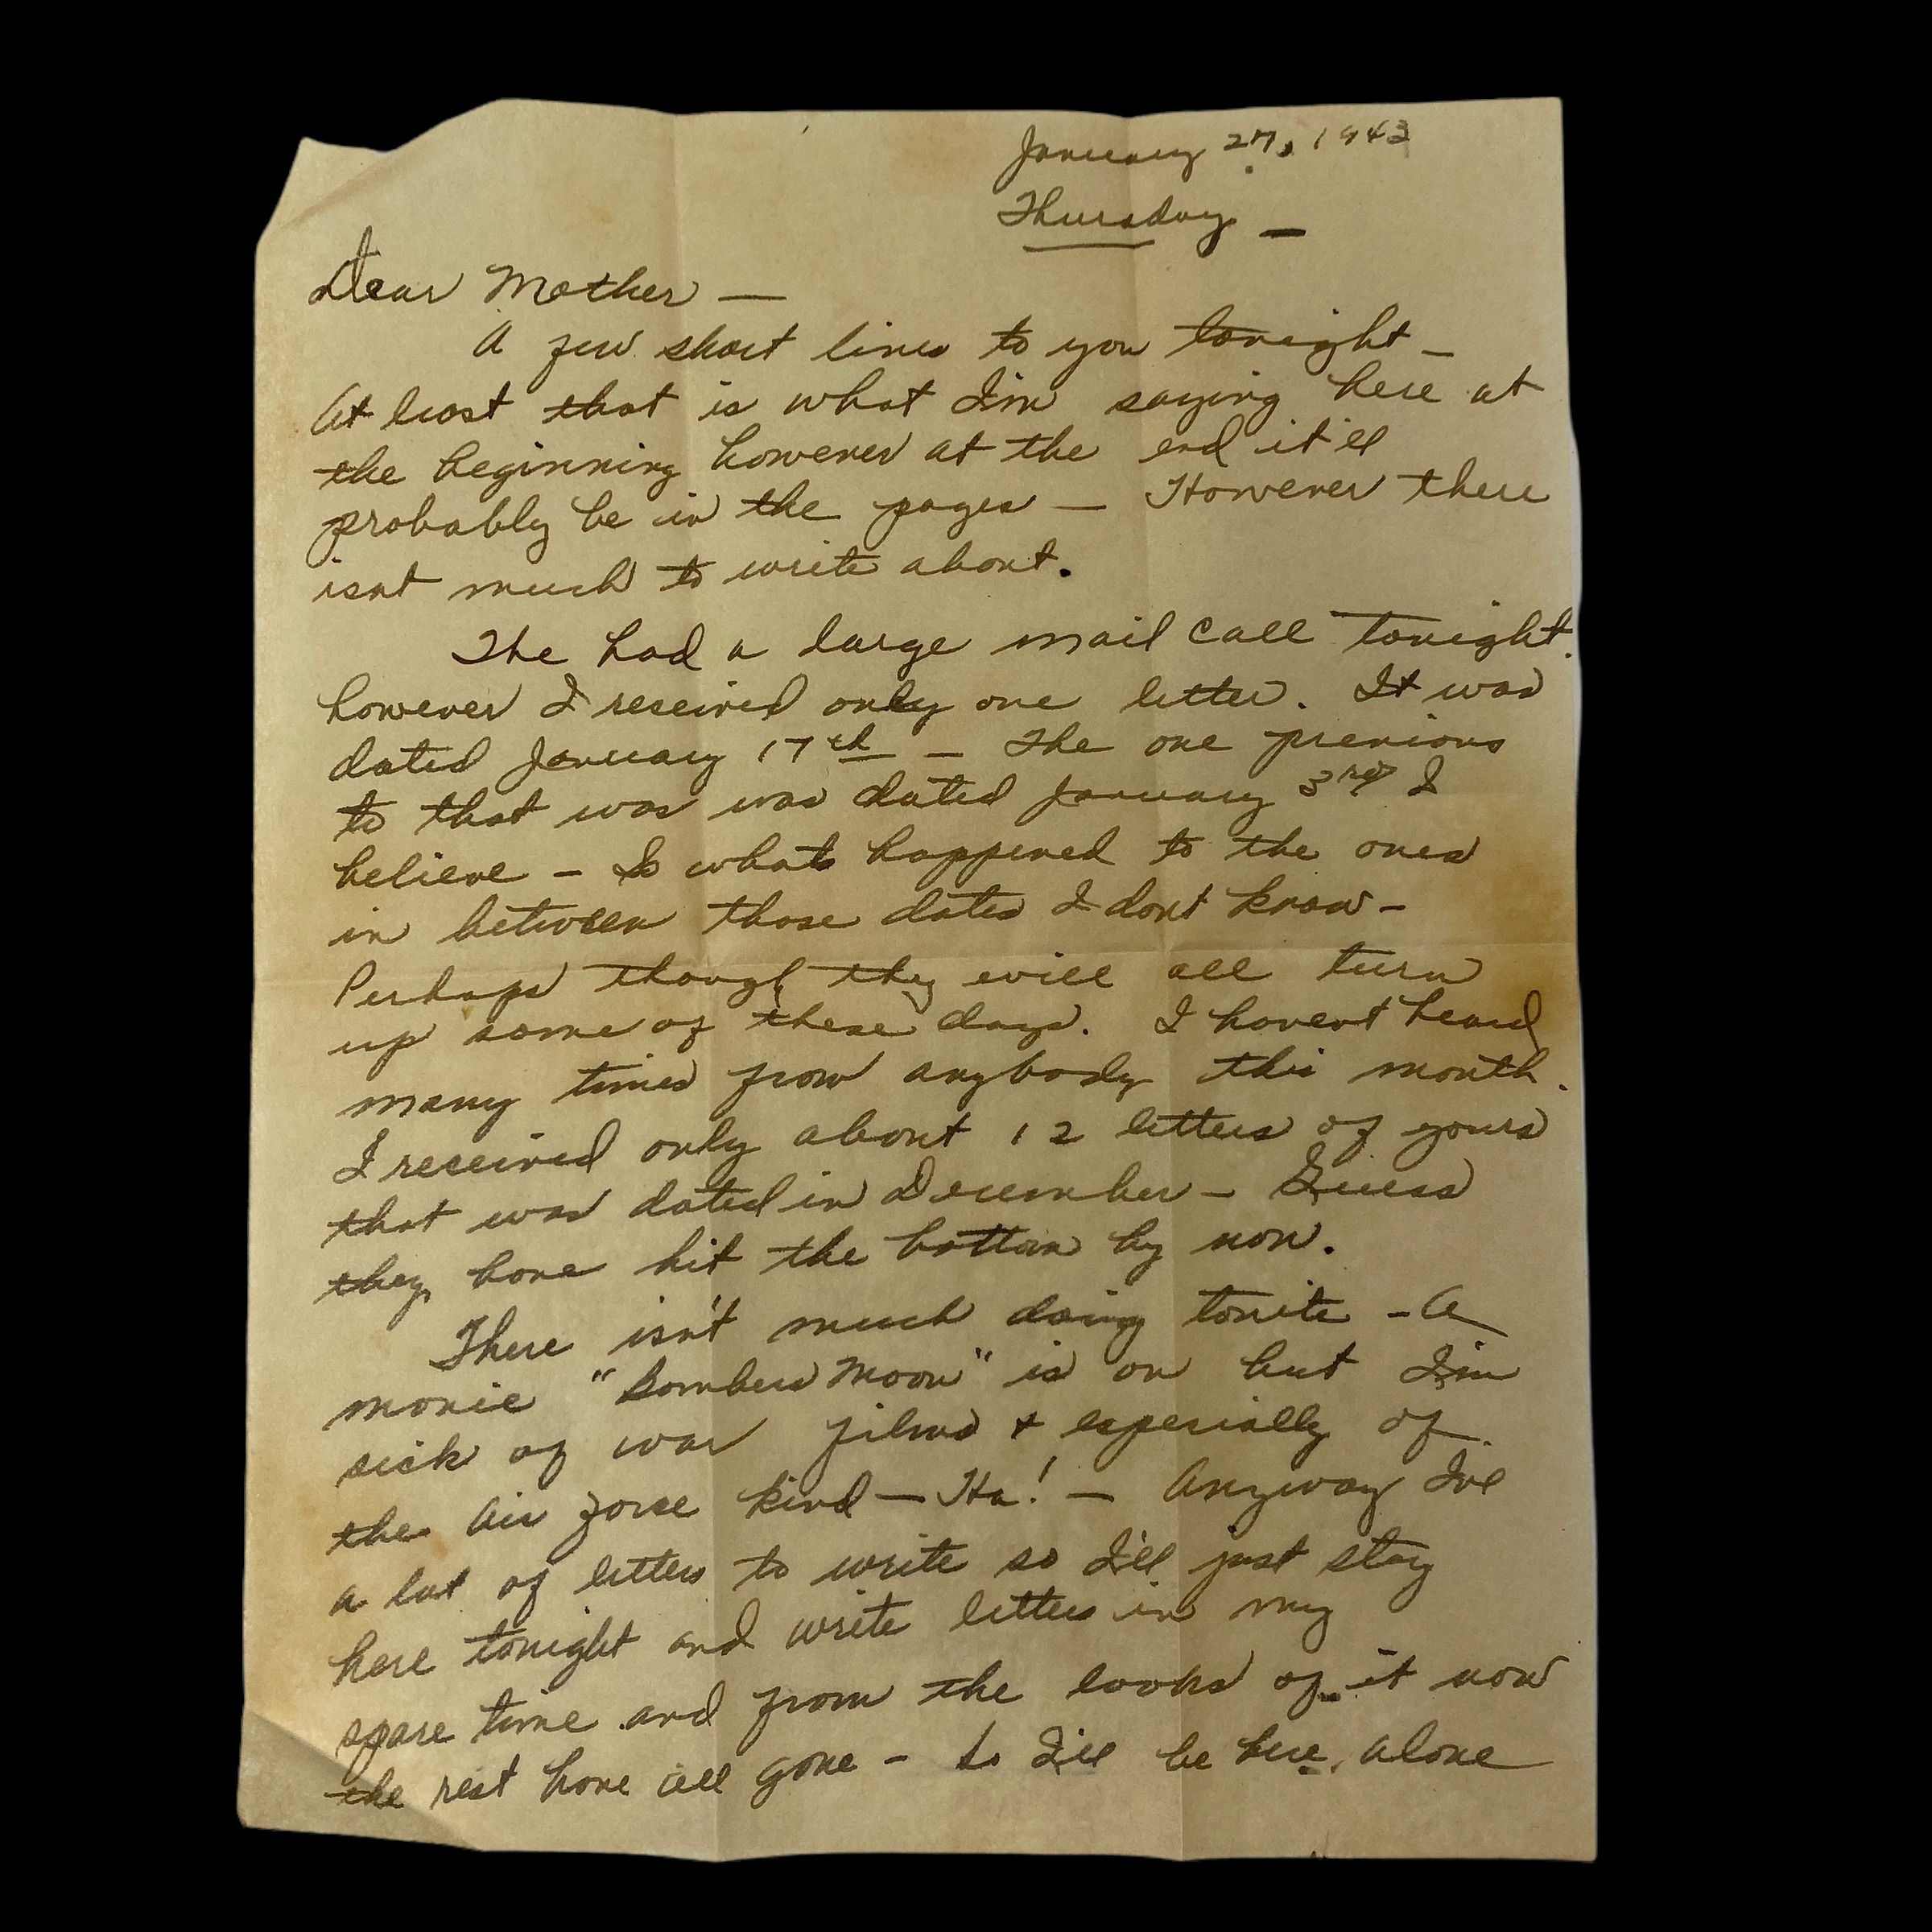 January 27, 1943
Thursday —
Dear Mother —
A few short lines to you tonight —
At least that is what I'm saying here at
the beginning however at the end it'll
probably be in the pages — However there
isnt much to write about.
The had a large mail call tonight.
however I received only one letter. It was
dated January 17th — The one previous
to that was was dated January 3rd I
believe — So whats happened to the ones
in between those dates I dont know —
Perhaps though they will all turn
up some of these days. I havent heard
many times from anybody this month.
I received only about 12 letters of yours
that was dated in December — Guess
they have hit the bottom by now.
There isn't much doing tonite — A
movie "Bombers Moon" is on but I'm
sick of war films & especially of
the Air Forse kind — Ha! — Anyway I've
a lot of letters to write so I'll just stay
here tonight and write letters in my
spare time and from the looks of it now
the rest have all gone — So I'll be here, alone